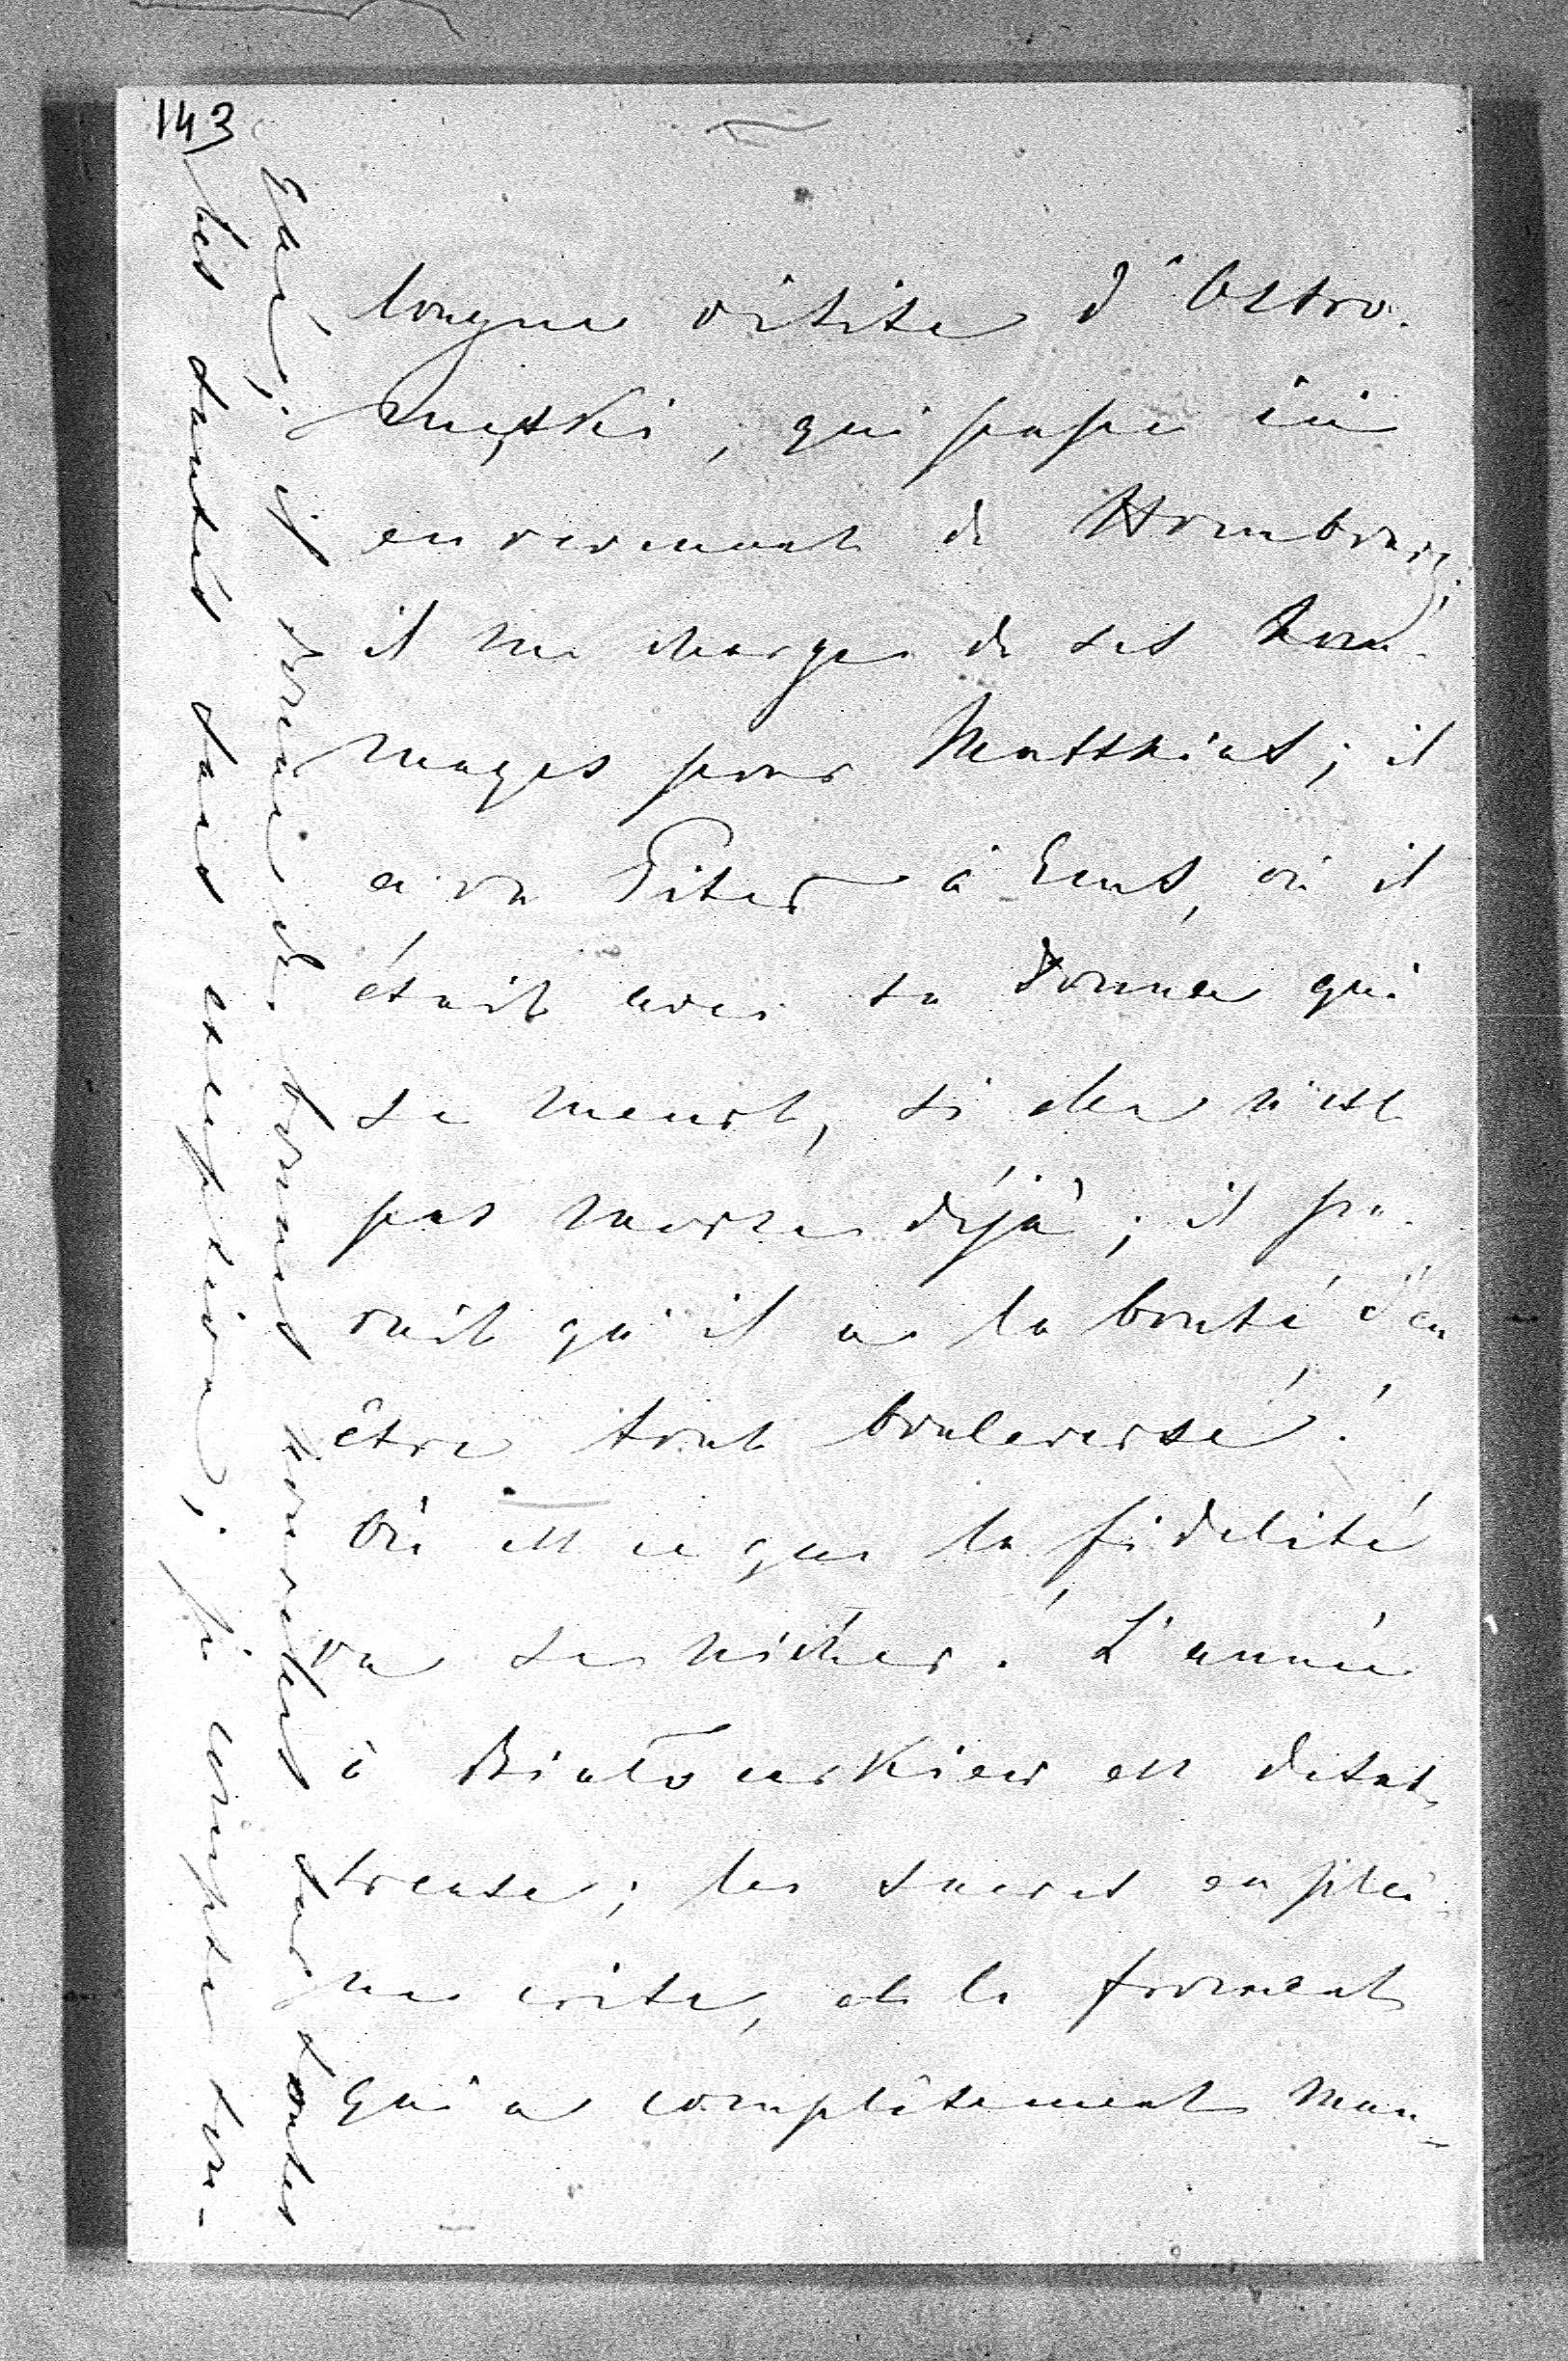 143
longue visite d'Ostro-
męski, qui passe ici
en revenant de Hombourg;
il me charge de ses hom-
mages pour Matthias; il
a vu Piter à Ems, où il
était avec sa donna qui
se meurt, si elle n'est
pas morte déjà; il pa-
rait qu'il a la bonté d'en
être tout bouleversé!
Où est ce que la fidélité
va se nicher. L'année
à Białocerkiew est desas-
treuse; les sucres en plei-
ne crise, et le froment
qui a complètement man-
bonnes
toutes
les santés sans exception; je compte tou-